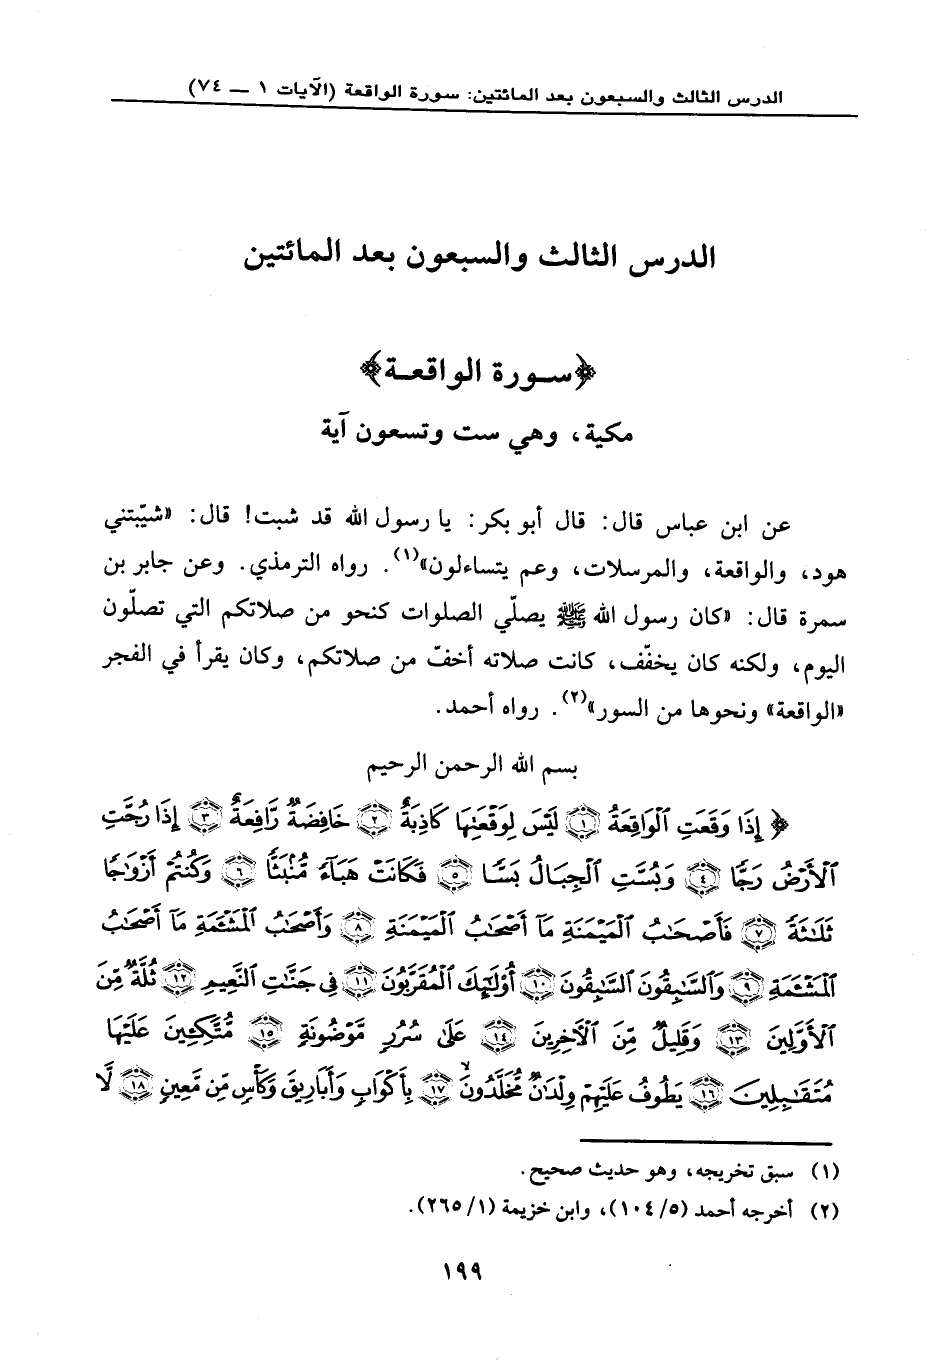 الدرس الثالث والسبعون بعد المائتين: سورة الواقعة (الآيات ١ — ٧٤)
الدرس الثالث والسبعون بعد المائتين
﴿سورة الواقعة﴾
مكية، وهي ست وتسعون آية
عن ابن عباس قال: قال أبو بكر: يا رسول الله قد شبت! قال: «شيّبتني
هود، والواقعة، والمرسلات، وعم يتساءلون»(١). رواه الترمذي. وعن جابر بن
سمرة قال: «كان رسول الله ﷺ يصلّي الصلوات كنحو من صلاتكم التي تصلّون
اليوم، ولكنه كان يخفّف، كانت صلاته أخفّ من صلاتكم، وكان يقرأ في الفجر
«الواقعة» ونحوها من السور»(٢). رواه أحمد.
بسم الله الرحمن الرحيم
﴿ إِذَا وَقَعَتِ ٱلْوَاقِعَةُ ١ لَيْسَ لِوَقْعَتِهَا كَاذِبَةٌ ٢ خَافِضَةٌ رَّافِعَةٌ ٣ إِذَا رُجَّتِ
ٱلْأَرْضُ رَجًّا ٤ وَبُسَّتِ ٱلْجِبَالُ بَسًّا ٥ فَكَانَتْ هَبَآءً مُّنۢبَثًّا ٦ وَكُنتُمْ أَزْوَٰجًا
ثَلَٰثَةً ٧ فَأَصْحَٰبُ ٱلْمَيْمَنَةِ مَآ أَصْحَٰبُ ٱلْمَيْمَنَةِ ٨ وَأَصْحَٰبُ ٱلْمَشْـَٔمَةِ مَآ أَصْحَٰبُ
ٱلْمَشْـَٔمَةِ ٩ وَٱلسَّٰبِقُونَ ٱلسَّٰبِقُونَ ١٠ أُو۟لَٰٓئِكَ ٱلْمُقَرَّبُونَ ١١ فِي جَنَّٰتِ ٱلنَّعِيمِ ١٢ ثُلَّةٌ مِّنَ
ٱلْأَوَّلِينَ ١٣ وَقَلِيلٌ مِّنَ ٱلْآخِرِينَ ١٤ عَلَىٰ سُرُرٍ مَّوْضُونَةٍ ١٥ مُّتَّكِـِٔينَ عَلَيْهَا
مُتَقَٰبِلِينَ ١٦ يَطُوفُ عَلَيْهِمْ وِلْدَٰنٌ مُّخَلَّدُونَ ١٧ بِأَكْوَابٍ وَأَبَارِيقَ وَكَأْسٍ مِّن مَّعِينٍ ١٨ لَّا
(١) سبق تخريجه، وهو حديث صحيح.
(٢) أخرجه أحمد (٥/ ١٠٤)، وابن خزيمة (١/ ٢٦٥).
١٩٩